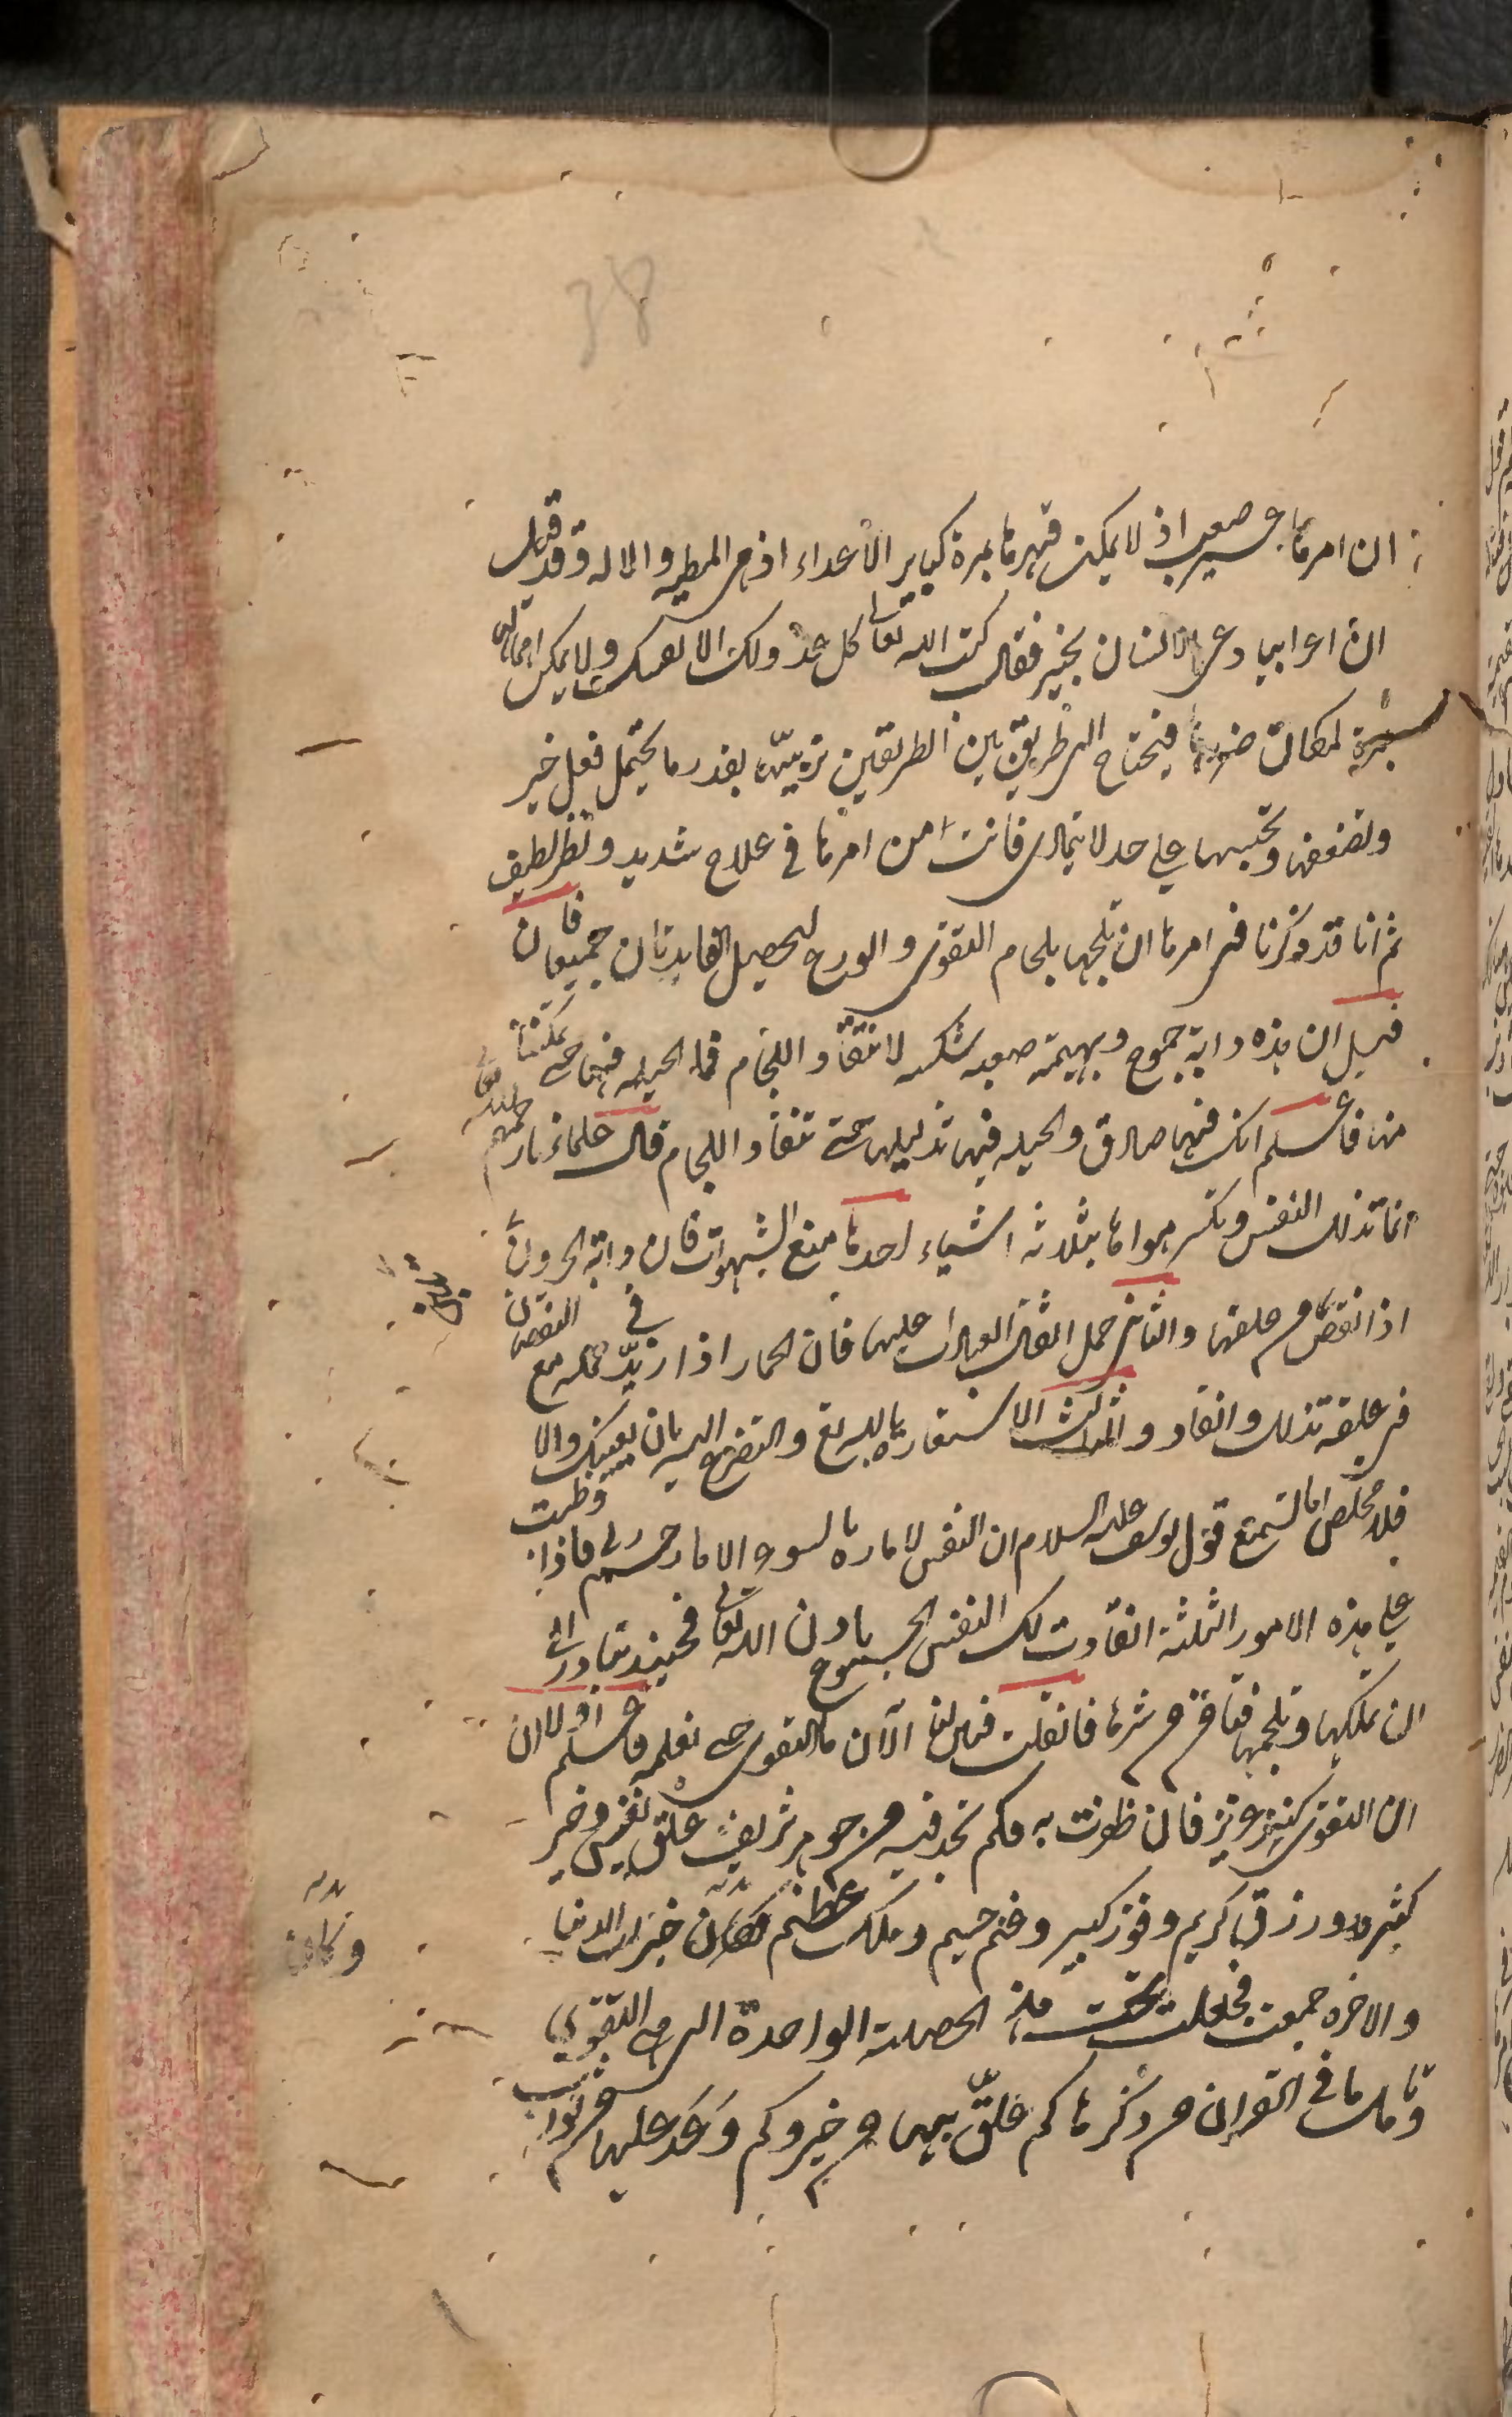 38
ان امرها عسير صعب اذ لا يمكن قهرها بمرة كباير الأعداء اذ هي المطية والالة وقد قيل
ان اعرابيا دعى لانسان بخير فقال كبت الله تعالى كل عدو لك الا نفسك ولا يمكن اهمالها
بمرة لمكان ضررها فيحتاج الى طريق بين الطريقين تربيها بقدر ما يحتمل فعل خير
وتضعفها وتحبسها على حد لا يتمادى فانت من امرها في علاج شديد ونظر لطيف
ثم انا قد ذكرنا في امرها ان تلجمها بلجام التقوى والورع لتحصيل الفايدتان جميعا فان
قيل ان هذه دابة جموح وبهيمة صعبه شكسه لا تنقاد اللجام فما الحيله فيها حتى تمكننا
منها فاعلم انك فيها صادق والحيله فيها تذليلها حتى تنقاد اللجام قال علماءنا رحمهم الله تعالى
انما تذلل النفس وتكسر هواها بثلاثه اشياء احدها منع الشهوات فان دابة الحرون
اذا نقص من علفها والثانى حمل اثقال العبادات عليها فان الحمار اذا زيد في حمله مع النقصان
في علفه تذلل وانقاد والثالث الاستعاذة بالله تع والتضرع اليه بان يعينك والا
فلا مخلص اما تسمع قول يوسف عليه السلام ان النفس لاماره بالسوء الا ما رحم ربى فاذا واظبت
على هذه الامور الثلثة انقادت لك النفس الجموح باذن الله تعالى فحينئذ تبادر الى
ان تملكها وتلجمها فتامن من شرها فان قلت فبين لنا الآن ما التقوى حتى نعلمه فاعلم اولا ان
ان التقوى كنز عزيز فان ظفرت به فكم تجد فيه من جوهر شريف علق نفيس وخير
كثير ورزق كريم وفوز كبير وغنم جسيم وملك عظيم فكان خيرات الدنيا
وكان
والاخره جمعت فجعلت تحت هذه الخصلة الواحدة التى هي التقوى
وتامل ما في القران من ذكرها كم علق بها من خير وكم وعد عليها من ثواب